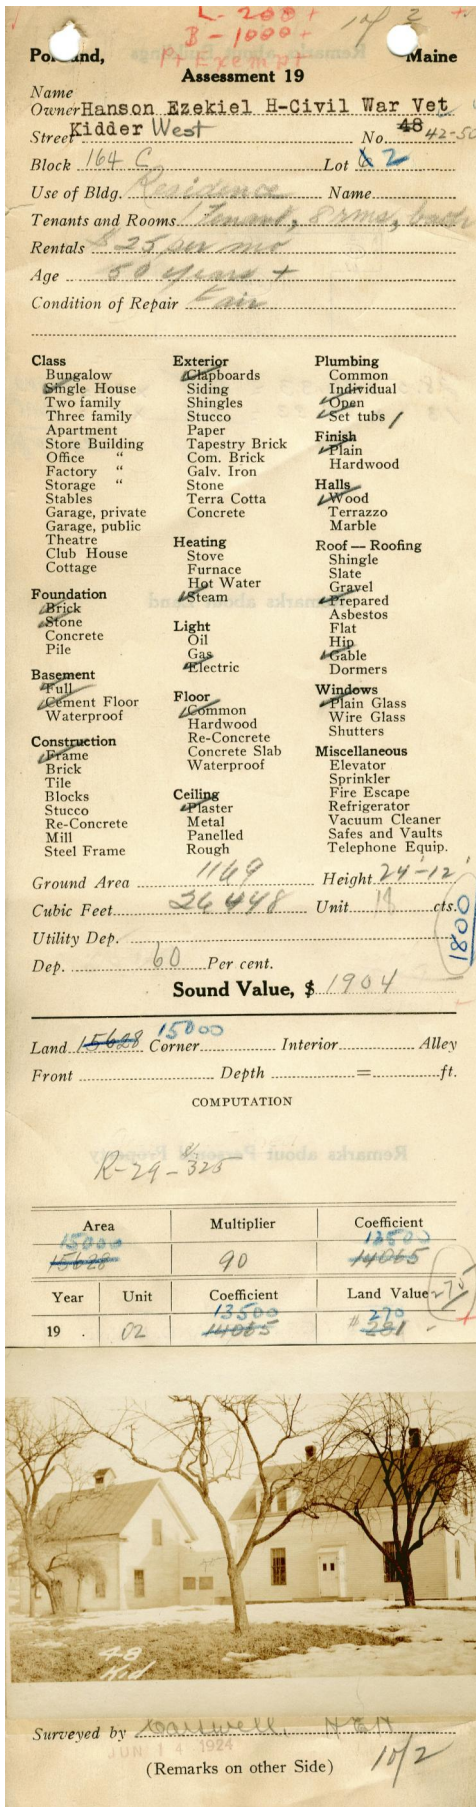 L-200+
B-1000+
Pt Exempt
1 of 2 +
Portland, Maine
Assessment 19
Name
Owner Hanson Ezekiel H-Civil War Vet
Street Kidder West No. 48 42-50
Block 164 C Lot 6 2
Use of Bldg. Residence Name
Tenants and Rooms 1 Tenant, 8 rms, bath
Rentals $25 per mo
Age 50 years +
Condition of Repair Fair
Class
Bungalow
Single House
Two family
Three family
Apartment
Store Building
Office "
Factory "
Storage "
Stables
Garage, private
Garage, public
Theatre
Club House
Cottage
Foundation
Brick
Stone
Concrete
Pile
Basement
Full
Cement Floor
Waterproof
Construction
Frame
Brick
Tile
Blocks
Stucco
Re-Concrete
Mill
Steel Frame
Exterior
Clapboards
Siding
Shingles
Stucco
Paper
Tapestry Brick
Com. Brick
Galv. Iron
Stone
Terra Cotta
Concrete
Heating
Stove
Furnace
Hot Water
Steam
Light
Oil
Gas
Electric
Floor
Common
Hardwood
Re-Concrete
Concrete Slab
Waterproof
Ceiling
Plaster
Metal
Panelled
Rough
Plumbing
Common
Individual
Open
Set tubs 1
Finish
Plain
Hardwood
Halls
Wood
Terrazzo
Marble
Roof — Roofing
Shingle
Slate
Gravel
Prepared
Asbestos
Flat
Hip
Gable
Dormers
Windows
Plain Glass
Wire Glass
Shutters
Miscellaneous
Elevator
Sprinkler
Fire Escape
Refrigerator
Vacuum Cleaner
Safes and Vaults
Telephone Equip.
Ground Area 1169 Height 24'-12'
Cubic Feet 26448 Unit 18 cts.
1800
Utility Dep.
Dep. 60 Per cent.
Sound Value, $ 1904
Land 15628 15000 Corner Interior Alley
Front Depth = ft.
COMPUTATION
R-29-$325
Area Multiplier Coefficient
15000 13500
15628 90 14065
Year Unit Coefficient Land Value 270
13500 270
19 . 02 14065 $281
48
Kid
Surveyed by Carswell, HEH
JUN 14 1924
(Remarks on other Side) 10/2